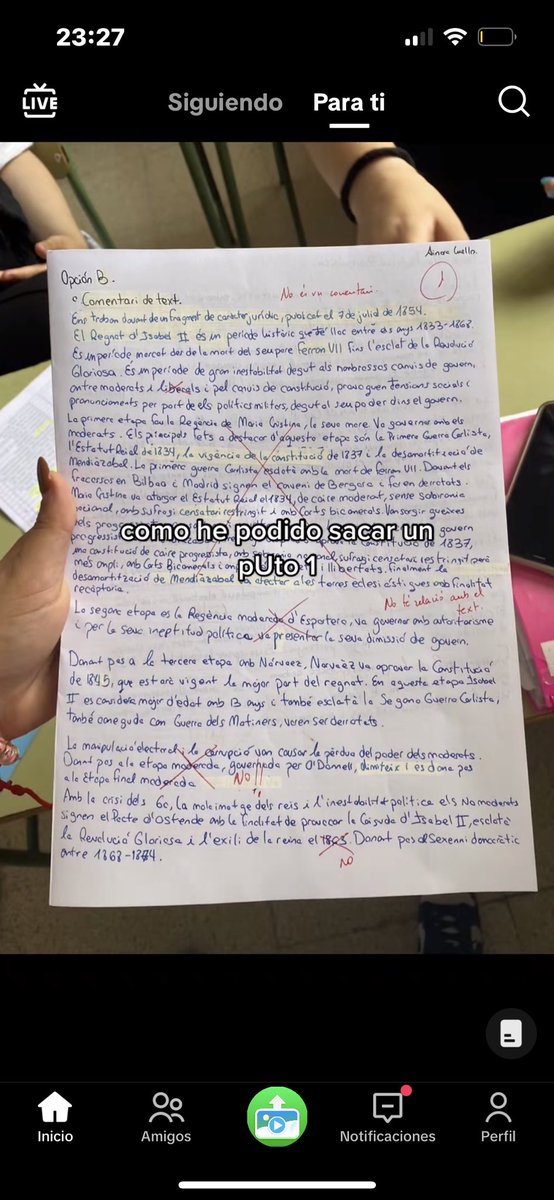 23:27
LIVE
Siguiendo
Para ti
Ainara
Opción B.
No és un comentari.
1
Comentari de text.
Ens trobem davant de un fragment de caràcter jurídic, publicat el 7 de juliol de 1854.
El Regnat d'Isabel II és un període històric que té lloc entre els anys 1833-1868.
És un període marcat per de la mort del seu pare Ferran VII fins l'esclat de la Revolució
Gloriosa. És un període de gran inestabilitat degut als nombrosos canvis de govern,
entre moderats i liberals i pel canvis de constitució, provoquen tensions socials i
pronunciaments per part de els polítics militars, degut al seu poder dins el govern.
La primera etapa fou la Regència de Maria Cristina, la seva mare. Va governar amb els
moderats. Els principals fets a destacar d'aquesta etapa són la Primera Guerra Carlista,
l'Estatut Reial de 1834, la vigència de la constitució de 1837 i la desamortització de
Mendizábal. La primera guerra Carlista esclatà amb la mort de Ferran VII. Davant els
fracassos en Bilbao i Madrid signen el conveni de Bergara i foren derrotats.
Maria Cristina va atorgar el Estatut Reial el 1834, de caire moderat, sense sobirania
nacional, amb sufragi censatari restringit i amb Corts bicamerals. Van sorgir queixes
dels
govern
como he podido sacar un
pUto 1
de 1837,
una constitució de caire progressista, amb
sufragi censatari restringit però
més ampli, amb Corts Bicamerals i
llibertats. Finalment la
desamortització de Mendizábal va afectar a les terres eclesiàstiques amb finalitat
recaptòria.
No té relació amb el
text.
La segona etapa és la Regència moderada d'Espartero, va governar amb autoritarisme
i per la seva ineptitud política, va presentar la seva dimissió de govern.
Donant pas a la tercera etapa amb Narváez, Narváez va aprovar la Constitució
de 1845, que estarà vigent la major part del regnat. En aquesta etapa Isabel
II es considera major d'edat amb 13 anys i també esclatà la Segona Guerra Carlista,
també coneguda com Guerra dels Matiners, varen ser derrotats.
La manipulació electoral i la corrupció van causar la pèrdua del poder dels moderats.
Donant pas a la etapa moderada, governada per O'Donnell, dimiteix i es dona pas
a la Etapa final moderada
NO!!
Amb la crisi dels 60, la mala imatge dels reis i l'inestabilitat política els No moderats
signen el Pacte d'Ostende amb la finalitat de provocar la caiguda d'Isabel II, esclatà
la Revolució Gloriosa i l'exili de la reina el
Donant pas al Sexenni democràtic
entre 1868-1874.
NO
Inicio
Amigos
Notificaciones
Perfil